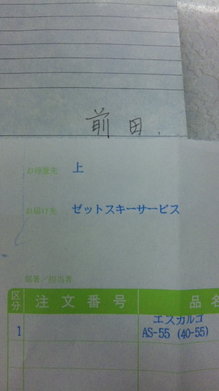 前田.
お得意先 上
お届け先 ゼットスキーサービス
部署/担当者
区分 注文番号 品名
1 エスカルゴ
AS-55 (40-55)